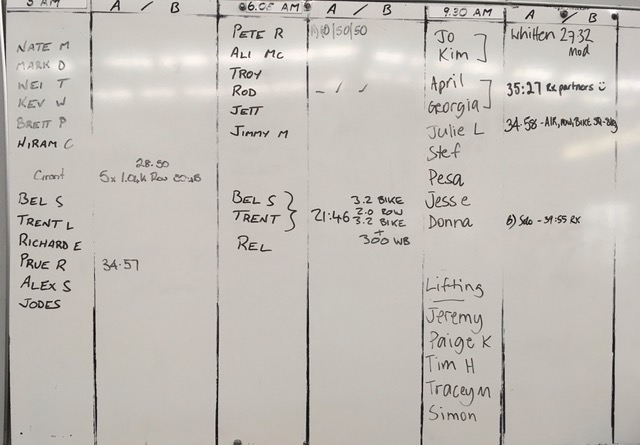 5 AM A / B
NATE M
MARK D
WEI T
KEV W
BRETT P
HIRAM C
28.50
Grant 5x 1.04K Row 80WB
BEL S
TRENT L
RICHARD E
PRUE R 34.57
ALEX S
JODES
6.05 AM A / B
PETE R /50/50
ALI MC
TROY
ROD - / /
JETT
JIMMY M
BEL S 3.2 BIKE
TRENT 21:46 2.0 ROW
3.2 BIKE
+
REL 300 WB
9.30 AM A / B
Jo Whitten 27.32
Kim Mod
April 35:27 Rx partners
Georgia
Julie L 34.58 - AIR, ROW, BIKE
Stef
Pesa
Jesse
Donna B) Solo - 39:55 RX
Lifting
Jeremy
Paige K
Tim H
Tracey M
Simon